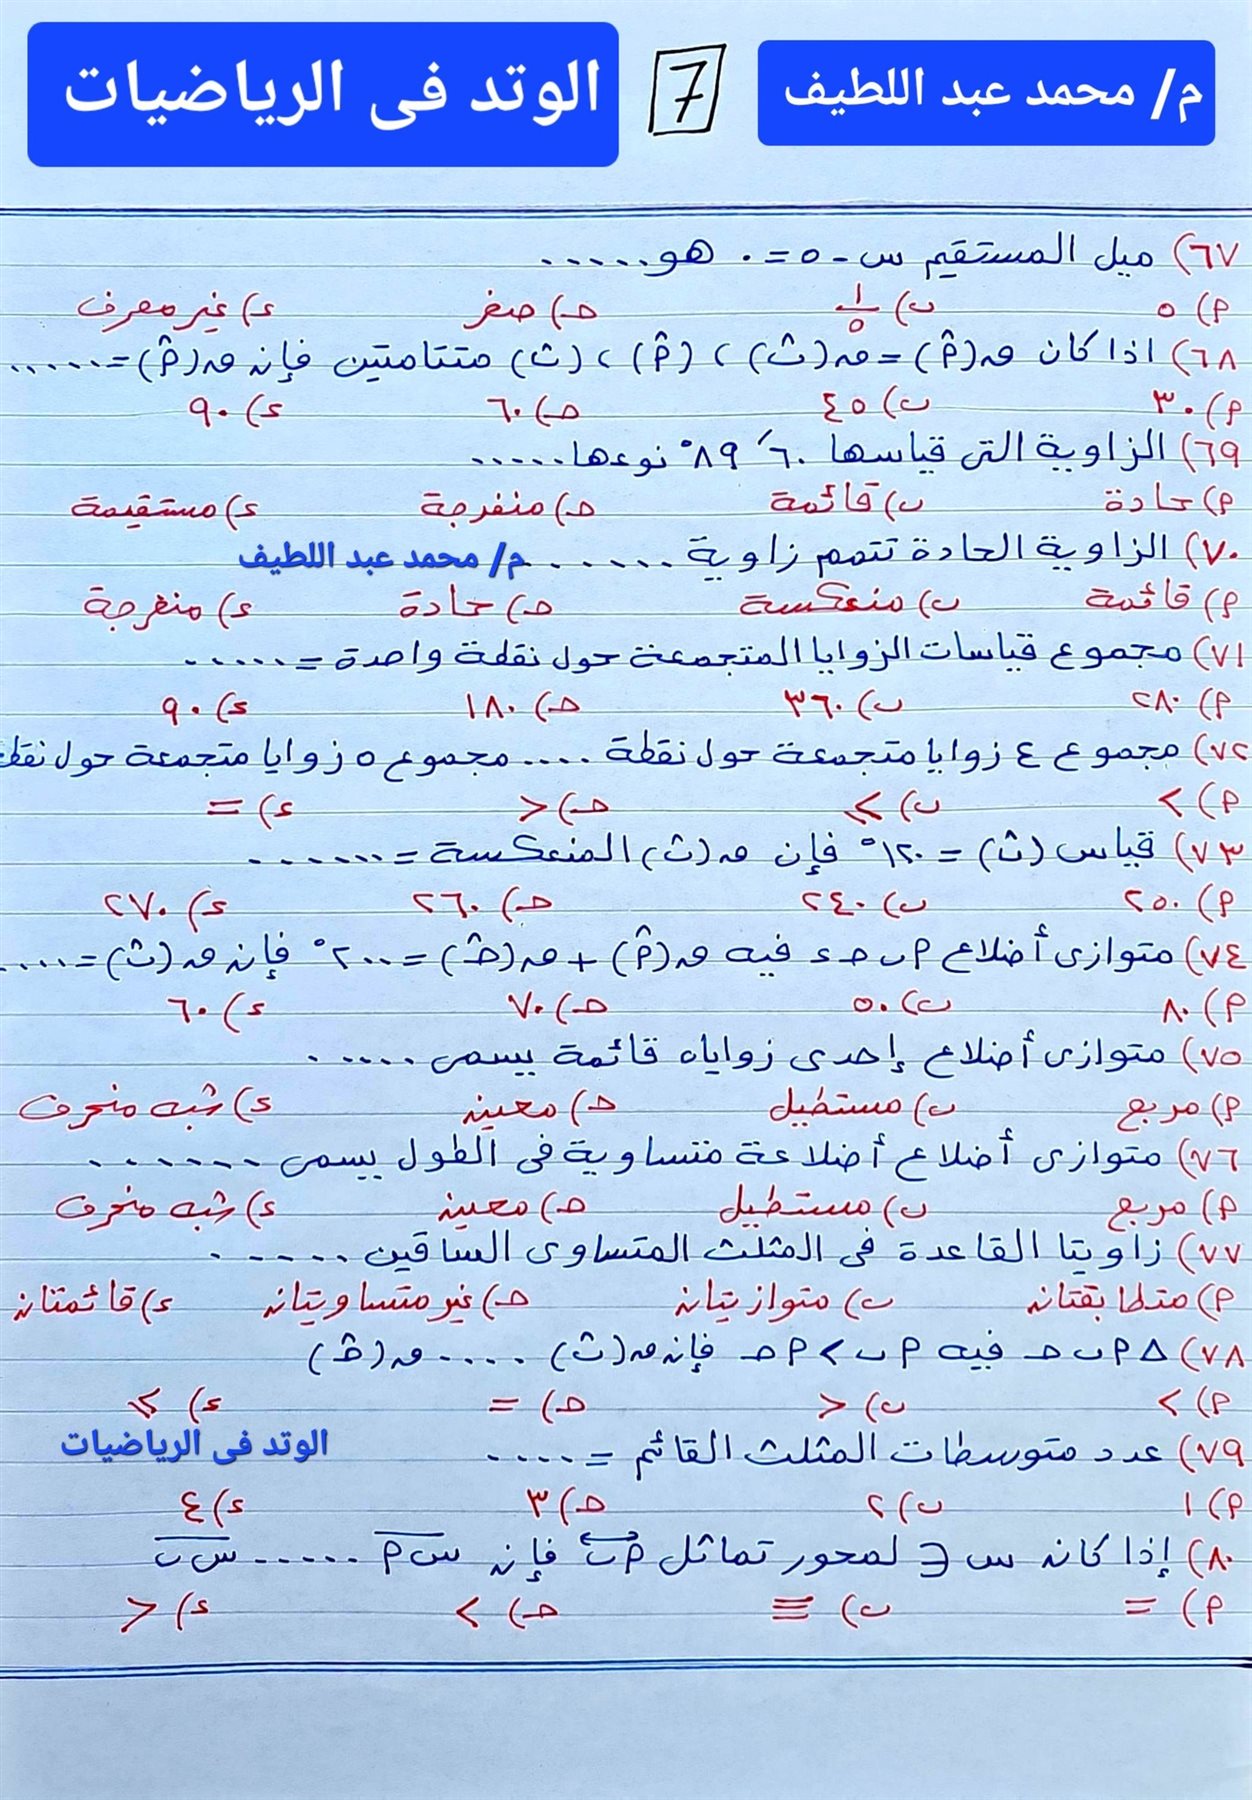 م/ محمد عبد اللطيف 7 الوتد فى الرياضيات
٦٧) ميل المستقيم س - ٥ = ٠ هو.....
أ) ٥ ب) ١/٥ حـ) صفر ء) غير معرف
٦٨) اذا كان ق(أ̂) = ق(ب̂) ، (أ̂) ، (ب̂) متتامتين فإن ق(أ̂) = .....
أ) ٣٠ ب) ٤٥ حـ) ٦٠ ء) ٩٠
٦٩) الزاوية التى قياسها ٦٠َ ٨٩° نوعها.....
أ) حادة ب) قائمة حـ) منفرجة ء) مستقيمة
٧٠) الزاوية الحادة تتمم زاوية ...... م/ محمد عبد اللطيف
أ) قائمة ب) منعكسة حـ) حادة ء) منفرجة
٧١) مجموع قياسات الزوايا المتجمعة حول نقطة واحدة = .....
أ) ٢٨٠ ب) ٣٦٠ حـ) ١٨٠ ء) ٩٠
٧٢) مجموع ٤ زوايا متجمعة حول نقطة .... مجموع ٥ زوايا متجمعة حول نقطة
أ) > ب) ≥ حـ) < ء) =
٧٣) قياس (ب̂) = ١٢٠° فإن ق(ب̂) المنعكسة = ......
أ) ٢٥٠ ب) ٢٤٠ حـ) ٢٦٠ ء) ٢٧٠
٧٤) متوازى أضلاع أ ب حـ ء فيه ق(أ̂) + ق(حـ̂) = ٢٠٠° فإن ق(ب̂) = ....
أ) ٨٠ ب) ٥٠ حـ) ٧٠ ء) ٦٠
٧٥) متوازى أضلاع إحدى زواياه قائمة يسمى .....
أ) مربع ب) مستطيل حـ) معين ء) شبه منحرف
٧٦) متوازى أضلاع أضلاعة متساوية فى الطول يسمى ......
أ) مربع ب) مستطيل حـ) معين ء) شبه منحرف
٧٧) زاويتا القاعدة فى المثلث المتساوى الساقين .....
أ) متطابقتان ب) متوازيتان حـ) غير متساويتان ء) قائمتان
٧٨) △ أ ب حـ فيه أ ب > أ حـ فإن ق(ب̂) .... ق(حـ̂)
أ) > ب) < حـ) = ء) ≥
٧٩) عدد متوسطات المثلث القائم = .... الوتد فى الرياضيات
أ) ١ ب) ٢ حـ) ٣ ء) ٤
٨٠) إذا كان س ∈ لمحور تماثل أ ب فإن س أ ..... س ب
أ) = ب) ≡ حـ) > ء) <